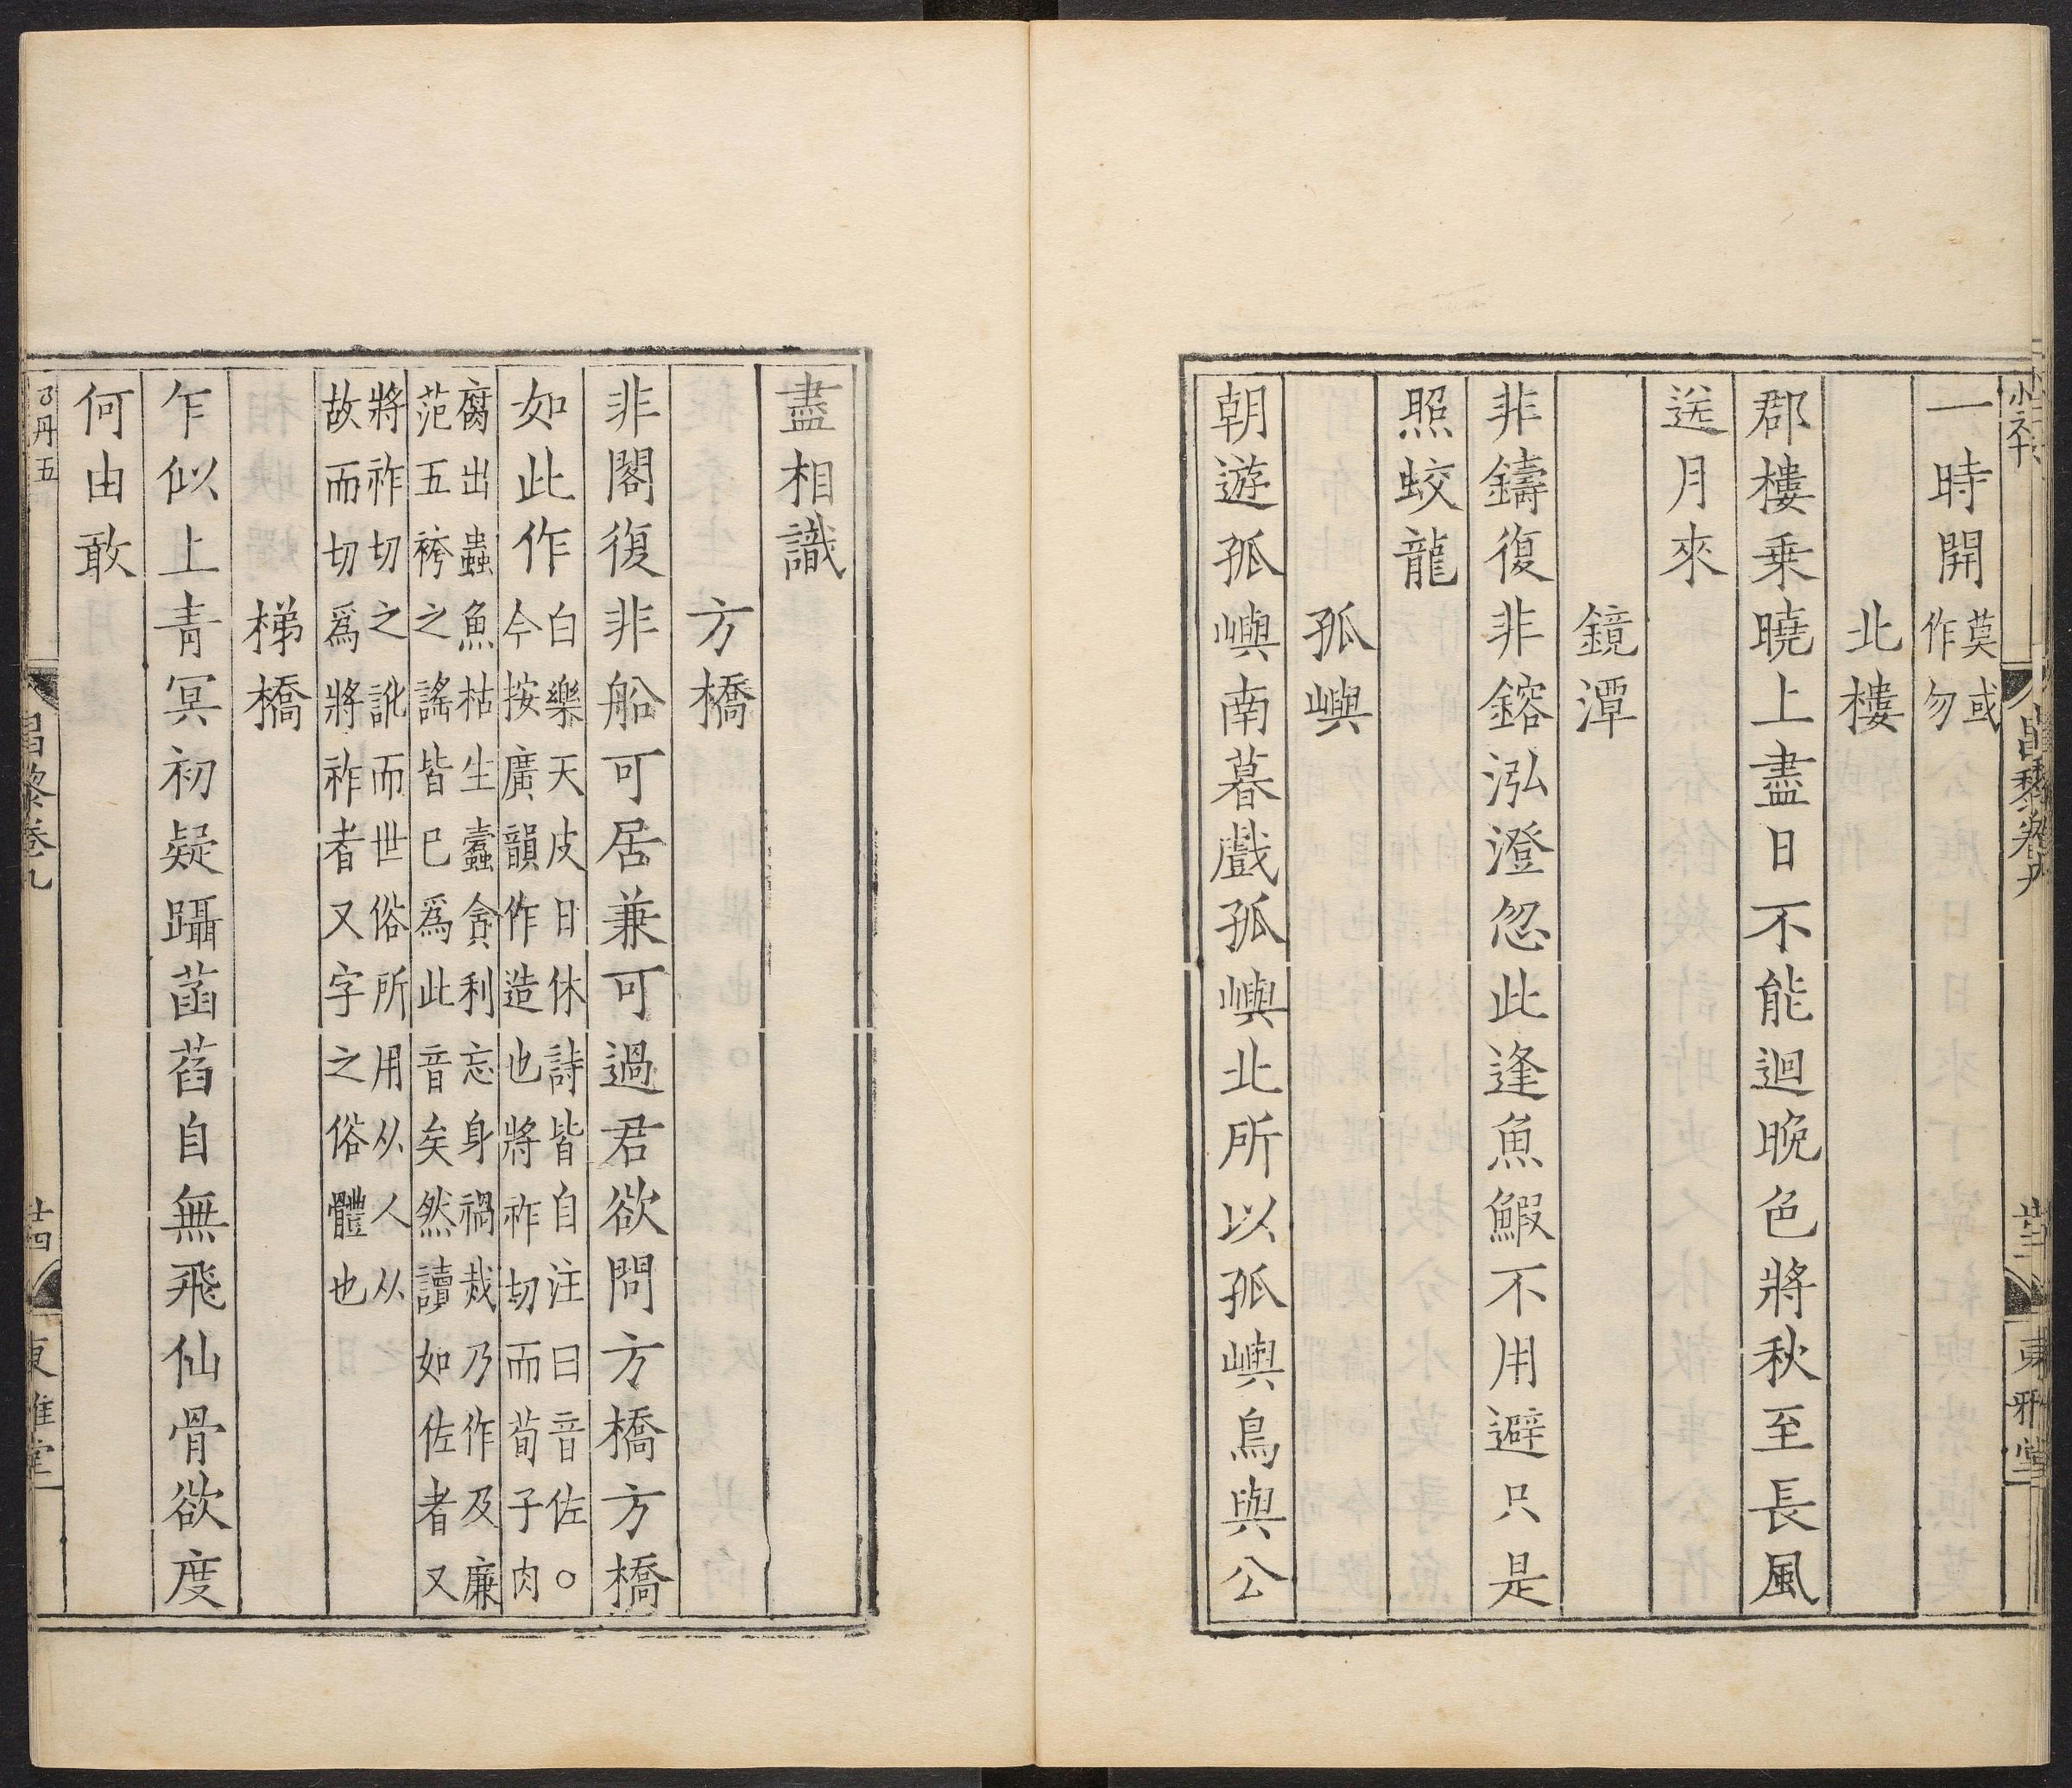 一時開莫或
作勿
北樓
郡樓乗曉上盡日不能迴晚色將秋至長風
送月來
鏡潭
非鑄復非鎔泓澄忽此逢魚鰕不用避只是
照蛟龍
孤嶼
朝遊孤嶼南暮戲孤嶼北所以孤嶼鳥與公
盡相識
方橋
非閣復非船可居兼可過君欲問方橋方橋
如此作白樂天皮日休詩皆自注曰音佐○
今按廣韻作造也將祚切而荀子肉
腐出蟲魚枯生蠹貪利忘身禍烖乃作及廉
范五袴之謠皆已爲此音矣然讀如佐者又
將祚切之訛而世俗所用从人从
故而切爲將祚者又字之俗體也
梯橋
乍似上青冥初疑躡菡萏自無飛仙骨欲度
何由敢
昌黎卷九
東雅堂
昌黎卷九
廿四
東雅堂